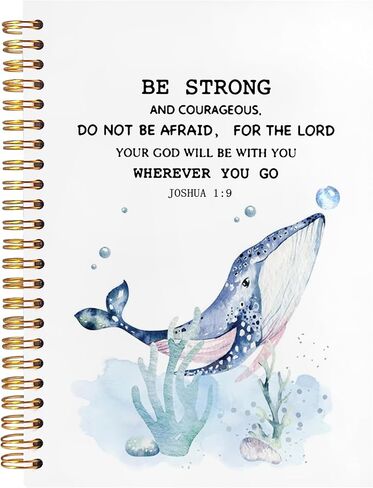 BE STRONG
AND COURAGEOUS.
DO NOT BE AFRAID, FOR THE LORD
YOUR GOD WILL BE WITH YOU
WHEREVER YOU GO
JOSHUA 1:9